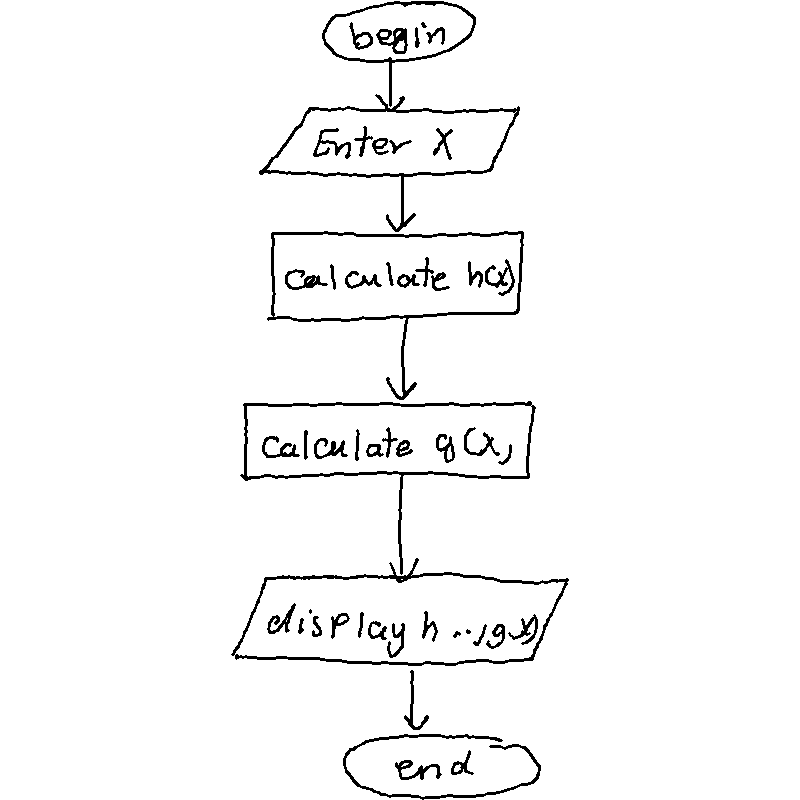 begin
Enter X
calculate h(x)
calculate g(x)
display h ..,g.x)
end